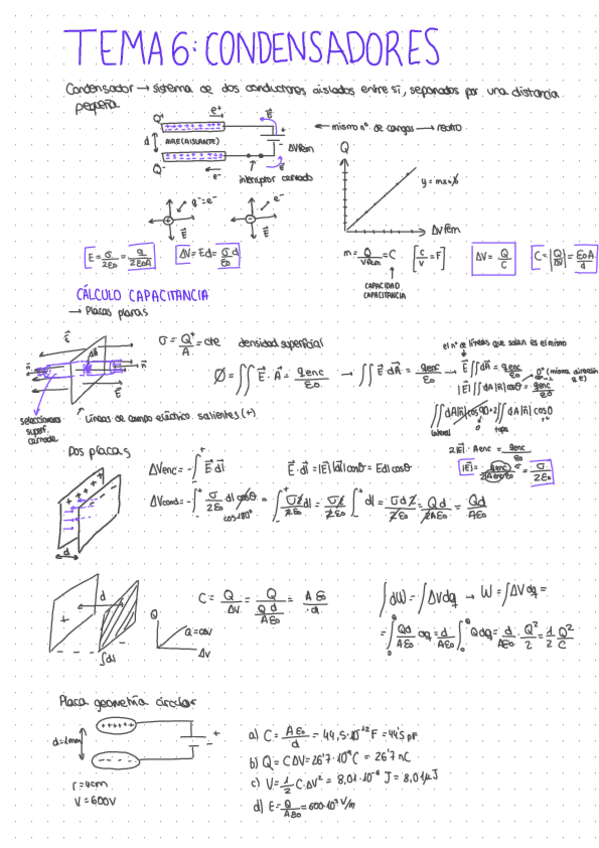 TEMA 6: CONDENSADORES
Condensador → sistema de dos conductores aislados entre sí, separados por una distancia
pequeña
Q+
e+
E
d
AIRE (AISLANTE)
+
-
ΔVfem
Q-
e-
interruptor cerrado
← mismo nº de cargas → neutro
Q
y = mx + b
ΔVfem
q- = e-
E
e-
E
E = σ/2ε0 = q/2ε0A
ΔV = Ed = σd/ε0
m = Q/Vfem = C
[C/V = F]
CAPACIDAD
CAPACITANCIA
ΔV = Q/C
C = |Q/ΔV| = ε0A/d
CÁLCULO CAPACITANCIA
→ Placas planas
σ = Q+/A = cte densidad superficial
el nº de líneas que salen es el mismo
∅ = ∬ E · A = qenc/ε0 → ∬ E dA = qenc/ε0 → E ∬ dA = qenc/ε0
|E| ∬ dA|n| cosθ = qenc/ε0
∬ dA|n| cos90 + 2 ∬ dA|n| cosθ
lateral
tapa
2|E| · Aenc = qenc/ε0
|E| = qenc/2Aencε0 = σ/2ε0
seleccionamos
superf.
cerrada
Líneas de campo eléctrico salientes (+)
Dos placas
ΔVenc = - ∫ E dl
E · dl = |E| |dl| cosθ = Edl cosθ
ΔVcond = - ∫ σ/2ε0 dl cosθ = ∫ σ2/2ε0 dl = σ2/2ε0 ∫ dl = σd2/2ε0 = Qd/Aε0 = Qd/Aε0
cos180º
d
d
+
-
∫dl
Q
Q = CΔV
ΔV
C = Q/ΔV = Q/(Qd/Aε0) = Aε0/d
∫dW = ∫ΔVdq → W = ∫ΔVdq =
= ∫ Qd/Aε0 dq = d/Aε0 ∫ Qdq = d/Aε0 Q²/2 = 1/2 Q²/C
Placa geometría circular
d = 1mm
+
-
r = 4cm
V = 600V
a) C = Aε0/d = 44,5 · 10⁻¹² F = 44'5 pF
b) Q = CΔV = 26'7 · 10⁻⁹ C = 26'7 nC
c) V = 1/2 C · ΔV² = 8,01 · 10⁻⁶ J = 8,01 μJ
d) E = Q/Aε0 = 600 · 10³ V/m